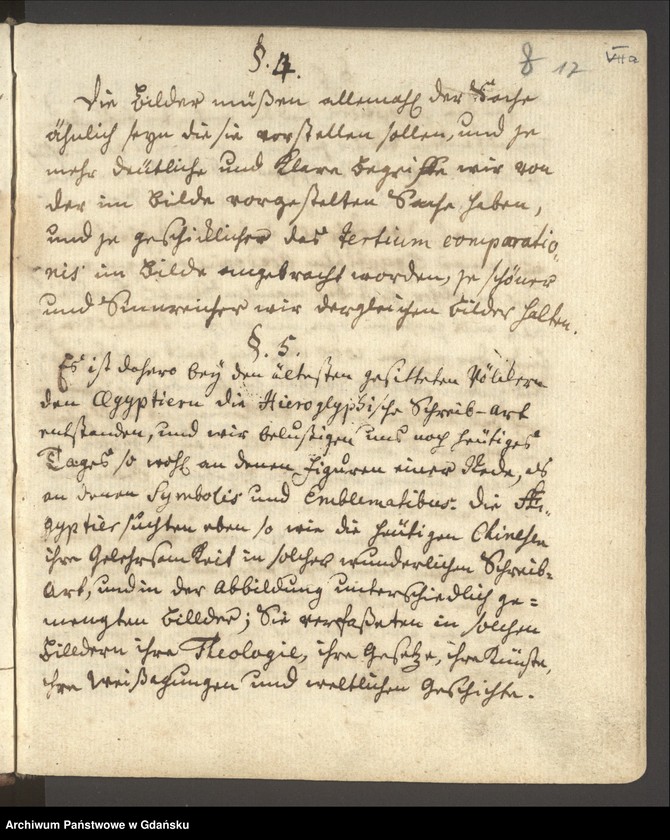 §. 4.
8 17 VIIa
Die Bilder müßen allemahl der Sache
ähnlich seyn die sie vorstellen sollen, und je
mehr deütliche und klare Begriffe wir von
der im Bilde vorgestelten Sache haben,
und je geschicklicher das tertium comparatio,
nis im Bilde angebracht worden, je schöner
und Sinnreicher wir dergleichen Bilder halten.
§. 5.
Es ist dahero bey den ältesten gesitteten Völkern
den Ægyptiern die Hieroglyphische Schreib-Art
entstanden, und wir belustigen uns noch heütiges
Tages so wohl an denen Figuren einer Rede, als
an denen Symbolis und Emblematibus. Die Æ-
gyptier suchten eben so wie die heütigen Chineser
ihre Gelehrsamkeit in solcher wunderlichen Schreib-
Art, und in der Abbildung unterschiedlich ge=
mengten Billder; Sie verfaßeten in solchen
Billdern ihre Theologie, ihre Gesetze, ihre Künste,
ihre Weißagungen und weltlichen Geschichte.
Archiwum Państwowe w Gdańsku